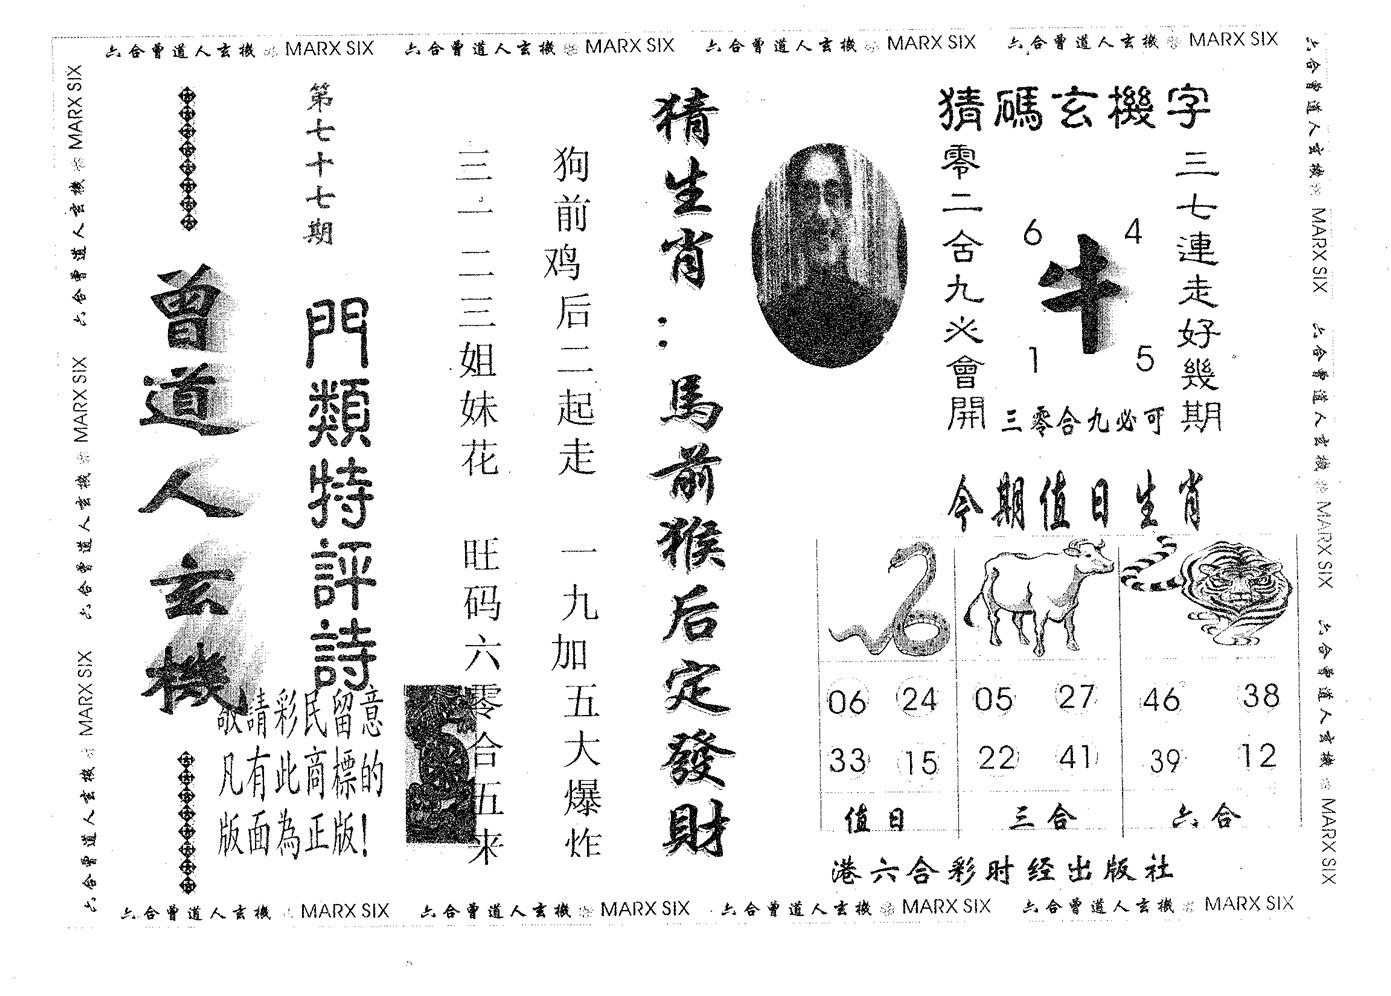 六合曾道人玄機 MARX SIX 六合曾道人玄機 MARX SIX 六合曾道人玄機 MARX SIX 六合曾道人玄機 MARX SIX
猜碼玄機字
三七連走好幾期
零二合九必會開
6 4
牛
1 5
三零合九必可
今期值日生肖
06 24 05 27 46 38
33 15 22 41 39 12
值日 三合 六合
港六合彩时经出版社
猜生肖：馬前猴后定發財
狗前鸡后二起走
一九加五大爆炸
三一二三姐妹花
旺码六零合五来
第七十七期
門類特評詩
曾道人玄機
敬請彩民留意
凡有此商標的
版面為正版！
六合曾道人玄機 MARX SIX 六合曾道人玄機 MARX SIX 六合曾道人玄機 MARX SIX
六合曾道人玄機 MARX SIX 六合曾道人玄機 MARX SIX 六合曾道人玄機 MARX SIX
六合曾道人玄機 MARX SIX 六合曾道人玄機 MARX SIX 六合曾道人玄機 MARX SIX 六合曾道人玄機 MARX SIX